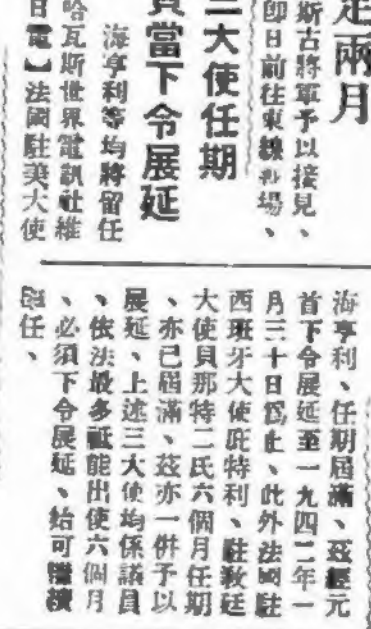 兩月
斯古將軍予以接見、
卽日前往東線戰場、
三大使任期
貝當下令展延
海亨利等均將留任
哈瓦斯世界電訊社維
日電】法國駐美大使
海亨利、任期屆滿、茲經元
首下令展延至一九四二年一
月三十日爲止、此外法國駐
西班牙大使庇特利、駐教廷
大使貝那特二氏六個月任期
、亦已屆滿、茲亦一併予以
展延、上述三大使均係議員
、依法最多祗能出使六個月
、必須下令展延、始可繼續
留任、